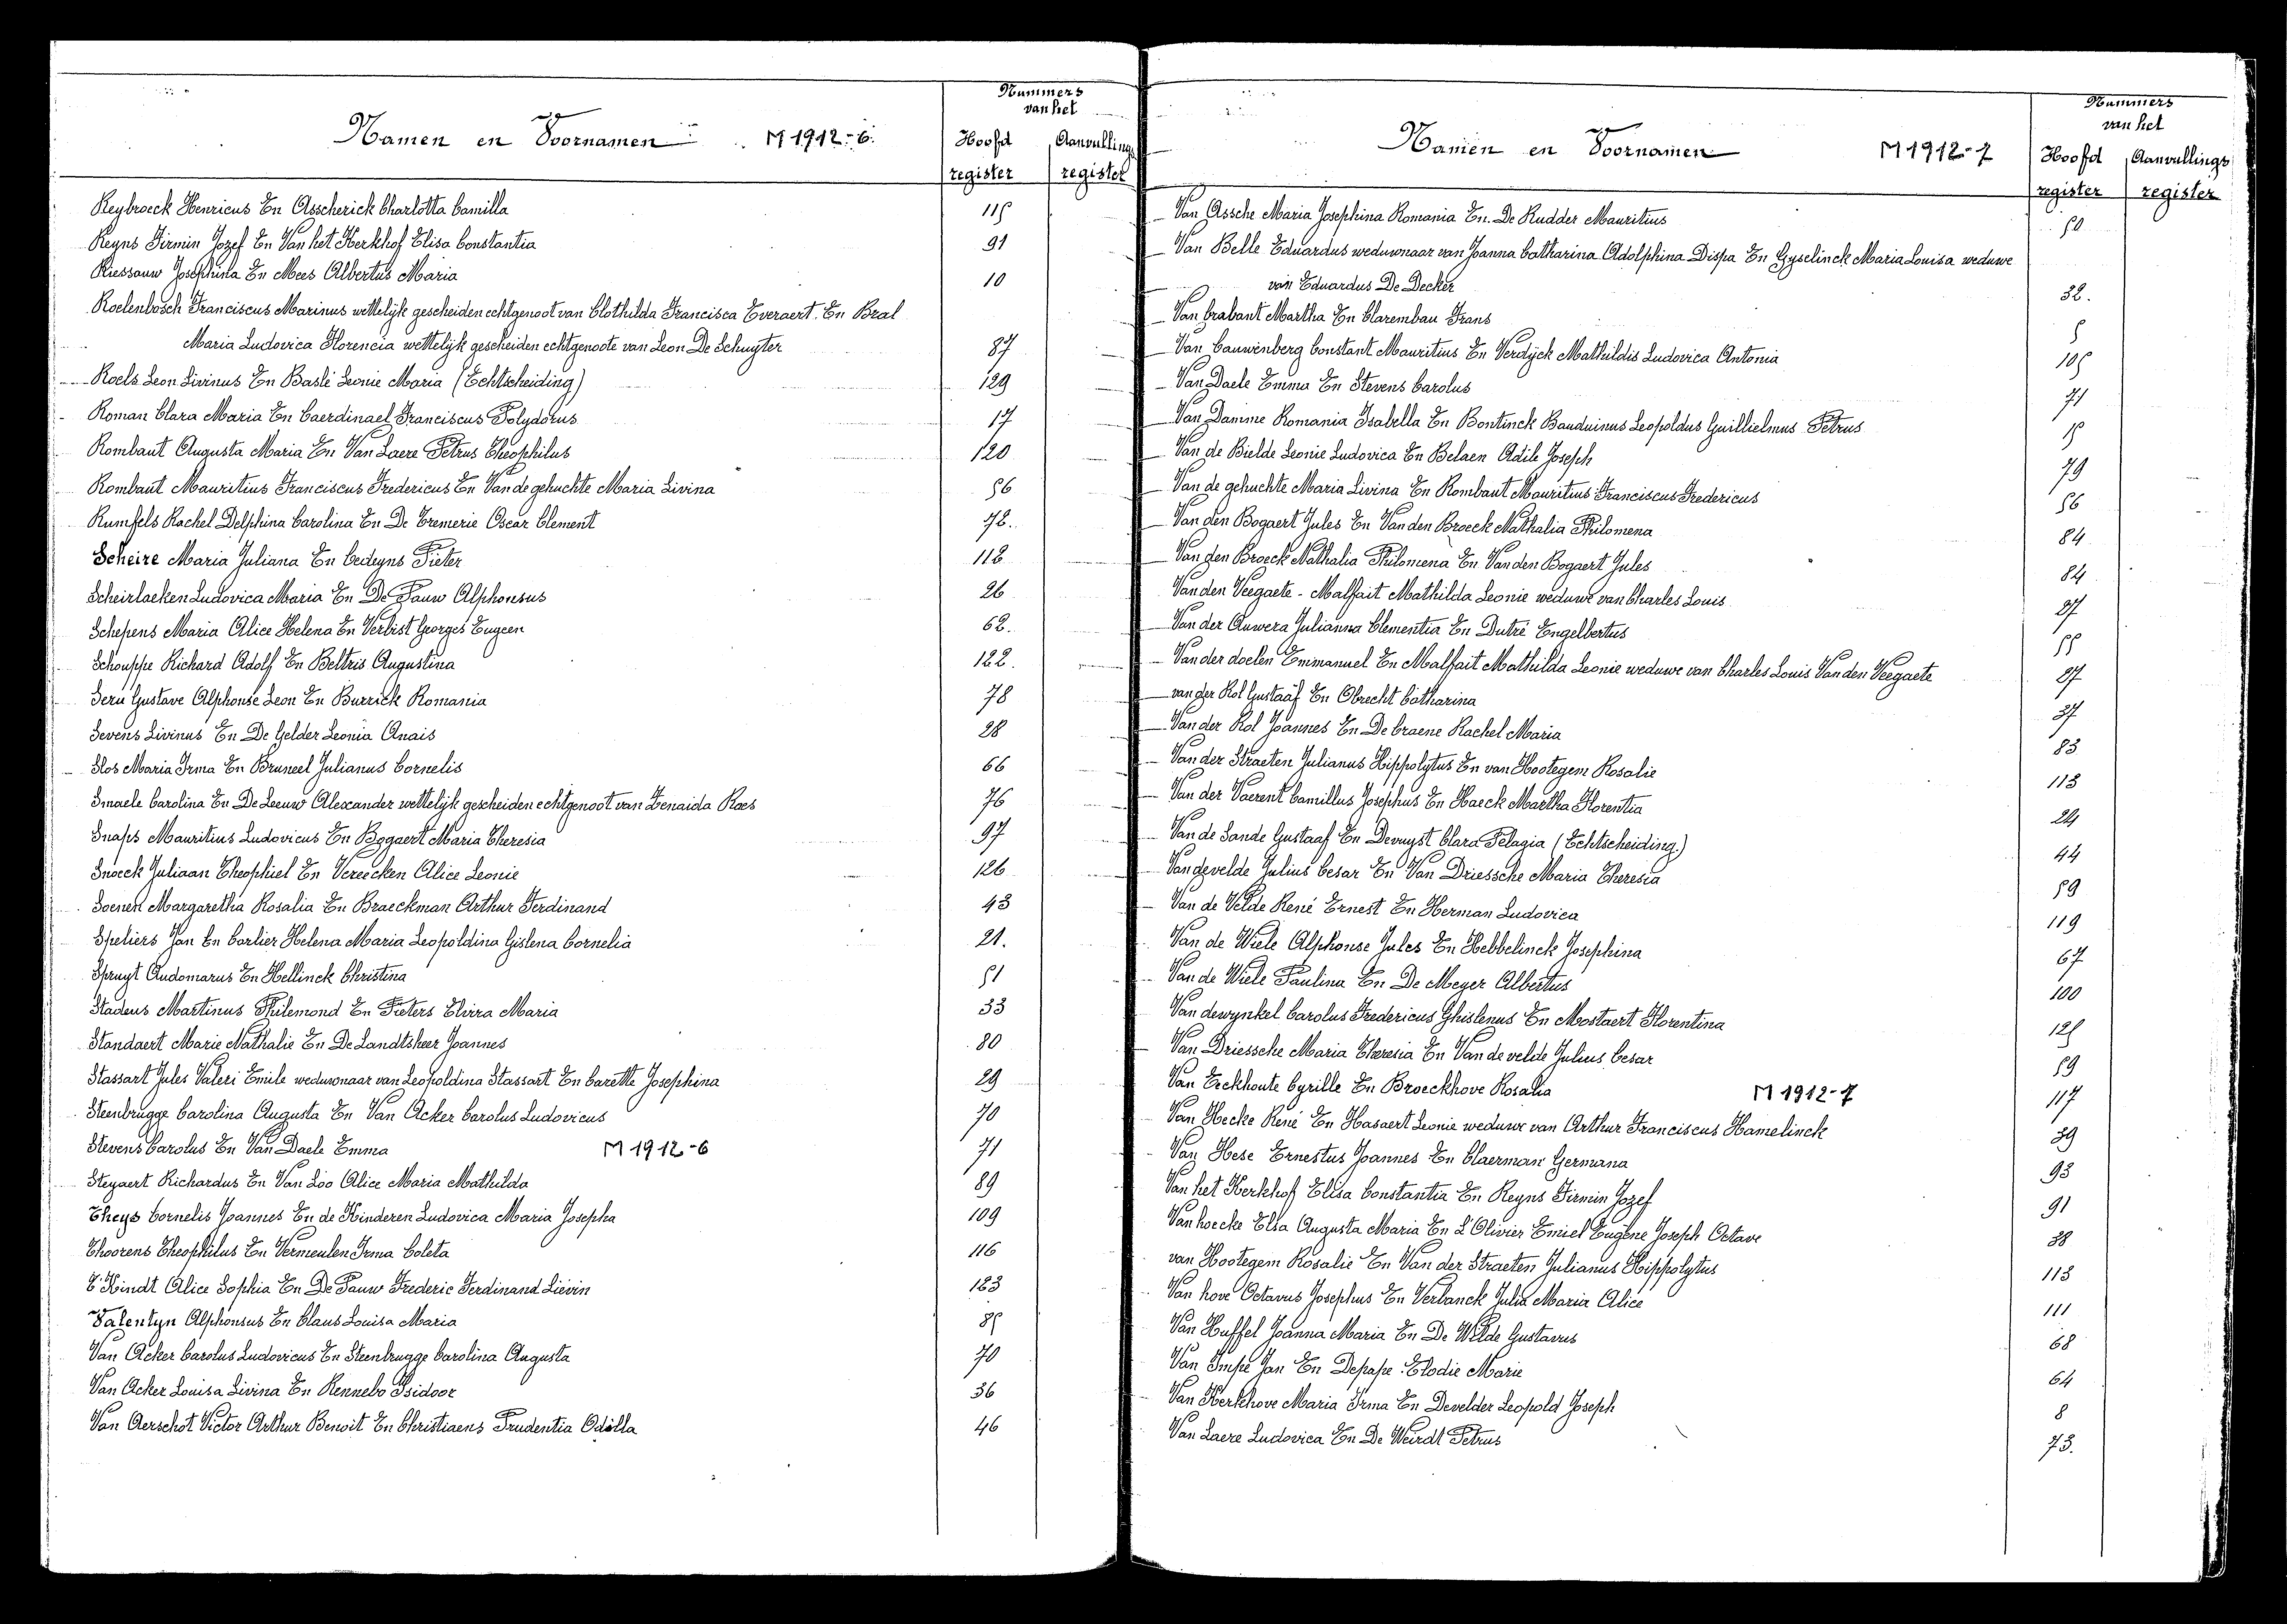 Namen en Voornamen M 1912-6.
Nummers van het
Hoofd register Aanvullings register
Reybroeck Henricus En Asscherick Charlotta Camilla 115
Reyns Firmin Jozef En Van het Kerkhof Elisa Constantia 91
Riessauw Josephina En Mees Albertus Maria 10
Roelenbosch Franciscus Marinus wettelijk gescheiden echtgenoot van Clothilda Francisca Everaert. En Bral
Maria Ludovica Florencia wettelijk gescheiden echtgenoote van Leon De Schuyter 87
Roels Leon Livinus En Baslé Leonie Maria (Echtscheiding) 129
Roman Clara Maria En Caerdinael Franciscus Polydorus 17
Rombaut Augusta Maria En Van Laere Petrus Theophilus 120
Rombaut Mauritius Franciscus Fredericus En Van de gehuchte Maria Livina 56
Rumfels Rachel Delphina Carolina En De Cremerie Oscar Clement 72.
Scheire Maria Juliana En Cedeyns Pieter 112
Scheirlaeken Ludovica Maria En De Pauw Alphonsus 26
Schepens Maria Alice Helena En Verbist Georges Eugeen 62.
Schouppe Richard Adolf En Beltris Augustina 122.
Seru Gustave Alphonse Leon En Burrick Romania 78
Sevens Livinus En De Gelder Leonia Anais 28
Slos Maria Irma En Bruneel Julianus Cornelis 66
Smaele Carolina En De Leeuw Alexander wettelijk gescheiden echtgenoot van Zenaida Roes 76
Snaps Mauritius Ludovicus En Bogaert Maria Theresia 97
Snoeck Juliaan Theophiel En Vereecken Alice Leonie 126
Soenen Margaretha Rosalia En Braeckman Arthur Ferdinand 43
Speliers Jan En Carlier Helena Maria Leopoldina Gislena Cornelia 21.
Spruyt Audomarus En Hellinck Christina 51
Stadeus Martinus Philemond En Pieters Elvira Maria 33
Standaert Marie Nathalie En De Landtsheer Joannes 80
Stassart Jules Valeri Emile weduwnaar van Leopoldina Stassart En Carette Josephina 29
Steenbrugge Carolina Augusta En Van Acker Carolus Ludovicus 70
Stevens Carolus En Van Daele Emma M 1912-6 71
Steyaert Richardus En Van Loo Alice Maria Mathilda 89
Theys Cornelis Joannes En de Kinderen Ludovica Maria Josepha 109
Thoorens Theophilus En Vermeulen Irma Coleta 116
T'Kindt Alice Sophia En De Pauw Frederic Ferdinand Lievin 123
Valentyn Alphonsus En Claus Louisa Maria 85
Van Acker Carolus Ludovicus En Steenbrugge Carolina Augusta 70
Van Acker Louisa Livina En Rennebo Isidoor 36
Van Aerschot Victor Arthur Benoit En Christiaens Prudentia Odilla 46
Namen en Voornamen M 1912-7
Nummers van het
Hoofd register Aanvullings register
Van Assche Maria Josephina Romania En. De Rudder Mauritius 50
Van Belle Eduardus weduwnaar van Joanna Catharina Adolphina Dispa En Gyselinck Maria Louisa weduwe
van Eduardus De Decker 32.
Van brabant Martha En Clarembau Frans 5
Van Cauwenberg Constant Mauritius En Verdyck Mathildis Ludovica Antonia 105
Van Daele Emma En Stevens Carolus 71
Van Damme Romania Isabella En Bontinck Bauduinus Leopoldus Guillielmus Petrus 15
Van de Bielde Leonie Ludovica En Belaen Adile Joseph 79
Van de gehuchte Maria Livina En Rombaut Mauritius Franciscus Fredericus 56
Van den Bogaert Jules En Van den Broeck Nathalia Philomena 84
Van den Broeck Nathalia Philomena En Van den Bogaert Jules 84
Van den Veegaete - Malfait Mathilda Leonie weduwe van Charles Louis 27
Van der Auwera Julianna Clementia En Dutré Engelbertus 55
Van der doelen Emmanuel En Malfait Mathilda Leonie weduwe van Charles Louis Van den Veegaete 27
van der Kol Gustaaf En Obrecht Catharina 37
Van der Kol Joannes En De Craene Rachel Maria 83
Van der Straeten Julianus Hippolytus En van Hootegem Rosalie 113
Van der Vaerent Camillus Josephus En Haeck Martha Florentia 24
Van de Sande Gustaaf En Devuyst Clara Pelagia (Echtscheiding.) 44
Vandevelde Julius Cesar En Van Driessche Maria Theresia 59
Van de Velde René Ernest En Herman Ludovica 119
Van de Wiele Alphonse Jules En Hebbelinck Josephina 67
Van de Wiele Paulina En De Meyer Albertus 100
Van dewynkel Carolus Fredericus Ghislenus En Mostaert Florentina 125
Van Driessche Maria Theresia En Van de velde Julius Cesar 59
Van Eeckhoute Cyrille En Broeckhove Rosalia M 1912-7 117
Van Hecke René En Hasaert Leonie weduwe van Arthur Franciscus Hamelinck 39
Van Hese Ernestus Joannes En Claerman Germana 93
Van het Kerkhof Elisa Constantia En Reyns Firmin Jozef 91
Van hoecke Elsa Augusta Maria En L'Olivier Emiel Eugène Joseph Octave 38
van Hootegem Rosalie En Van der Straeten Julianus Hippolytus 113
Van hove Octavus Josephus En Verbanck Julia Maria Alice 111
Van Huffel Joanna Maria En De Wilde Gustavus 68
Van Impe Jan En Depape Elodie Marie 64
Van Kerkhove Maria Irma En Develder Leopold Joseph 8
Van Laere Ludovica En De Weirdt Petrus 73.